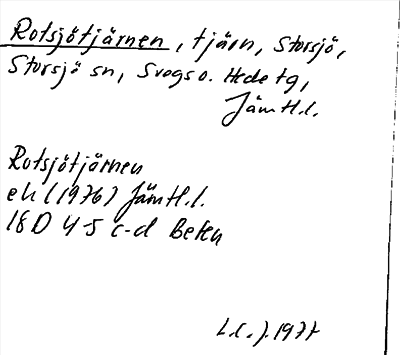 Rotsjötjärnen, tjärn, Storsjö,
Storsjö sn, Svegs o. Hede tg,
Jämtl.l.
Rotsjötjärnen
ek (1976) Jämtl.l.
18D 4-5 c-d
L.C.J. 1977